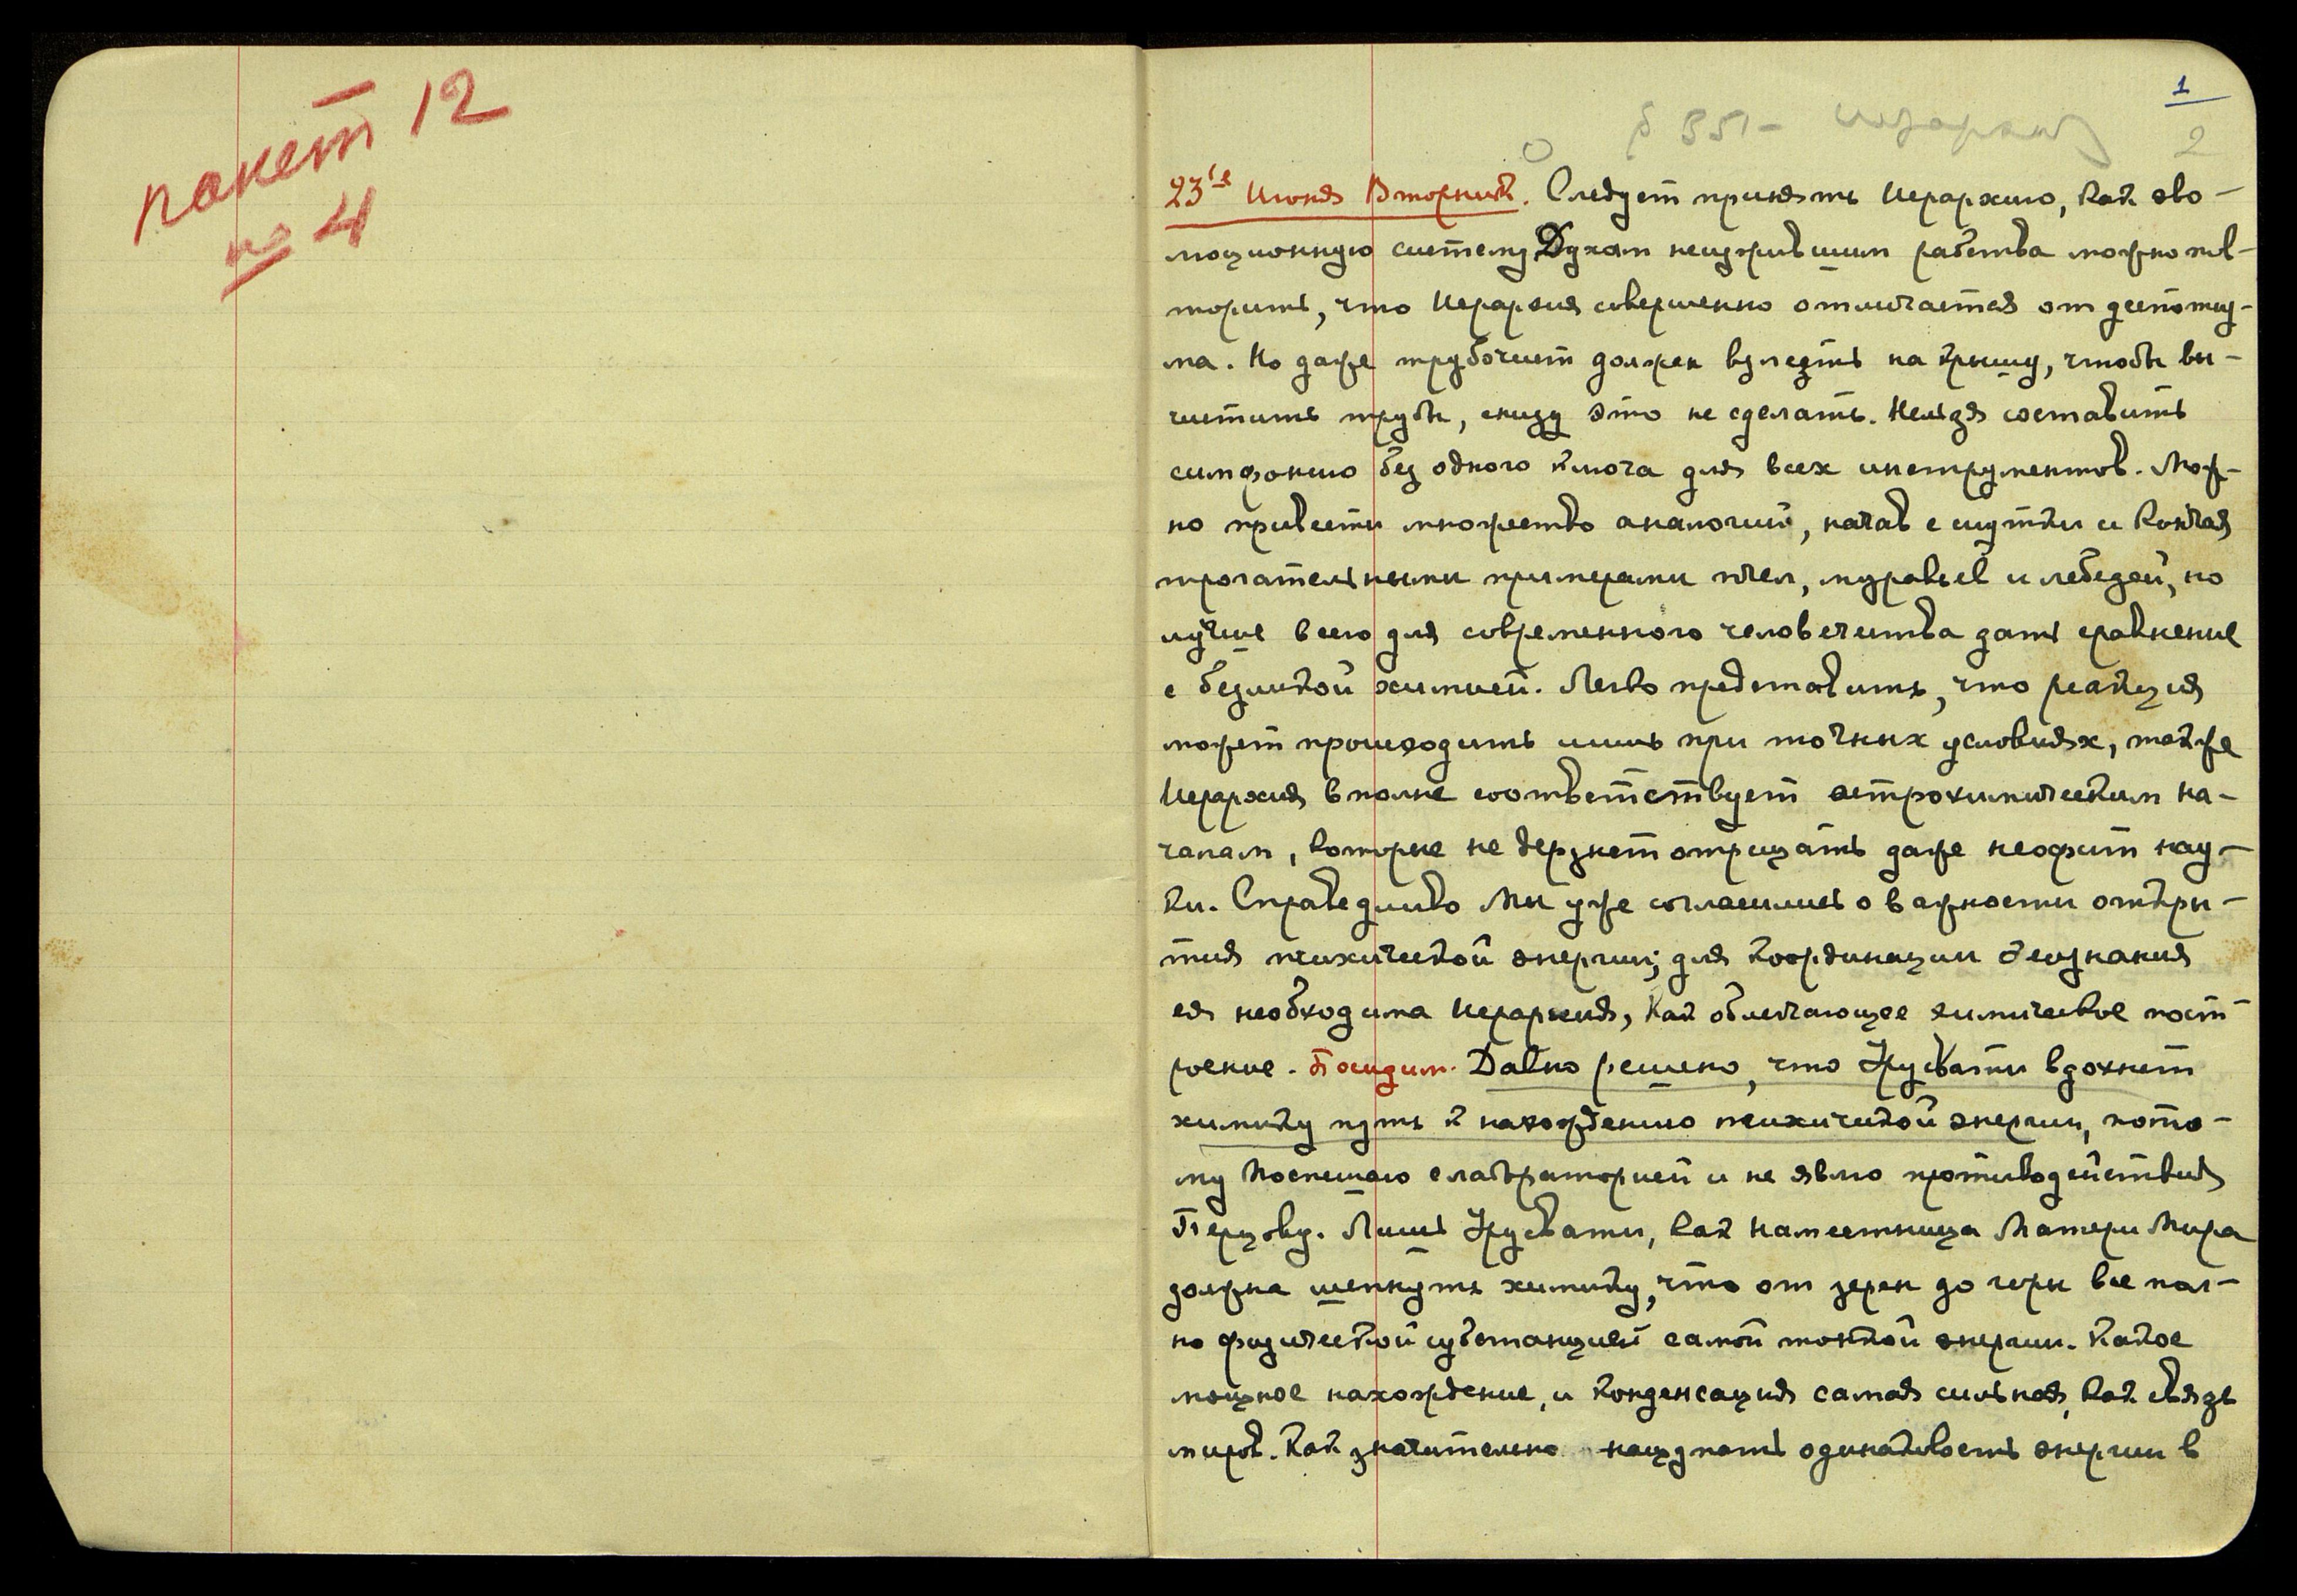 пакет 12
№ 4
1
2
§ 351 –
23го Июня Вторник. Следует принять Иерархию, как эво-
люционную систему. Духам неизжившим рабства можно пов-
торить, что Иерархия совершенно отличается от деспотиз-
ма. Но даже трубочист должен взлезть на крышу, чтобы вы-
чистить трубы, снизу это не сделать. Нельзя составить
симфонию без одного ключа для всех инструментов. Мож-
но привести множество аналогий, начав с шутки и кончая
трогательными примерами пчел, муравьев и лебедей, но
лучше всего для современного человечества дать сравнение
с безликой химией. Легко представить, что реакция
может происходить лишь при точных условиях, также
Иерархия вполне соответствует астрохимическим на-
чалам, которые не дерзнет отрицать даже неофит нау-
ки. Справедливо Мы уже согласились о важности откры-
тия психической энергии; для координации осознания
ея необходима Иерархия, как облегчающее химическое пост
роение. Посидим. Давно решено, что Урусвати вдохнет
химику путь к нахождению психической энергии, пото-
му поспешаю с лабораторией и не явлю противодействия
Перцову. Лишь Урусвати, как наместница Матери Мира
должна шепнуть химику, что от зерен до горы все пол-
но физической субстанцией самой тонкой энергии. Какое
мощное нахождение, и конденсация самая сильная, как связь
миров. Как значительно нащупать одинаковость энергии в